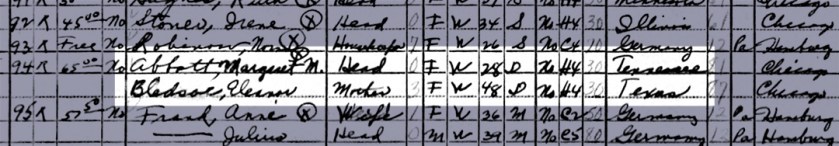 92 R 45 00 No Stoner, Irene Ⓧ Head 0 F W 34 S No H4 30 Illinois 61 Chicago
93 R Free No Robinson, Nora Ⓧ Housekeeper 7 F W 26 S No C4 10 Germany 12 Pa Hamburg
94 R 65 00 No Abbott, Margaret M. Ⓧ Head 0 F W 28 D No H4 30 Tennessee 81 Chicago
Bledsoe, Eleanor Mother 3 F W 48 D No H4 30 Texas 87 Chicago
95 R 57 50 No Frank, Anne Ⓧ Wife 1 F W 36 M No C2 50 Germany 12 Pa Hamburg
Julius Head 0 M W 39 M No C5 80 Germany 12 Pa Hamburg